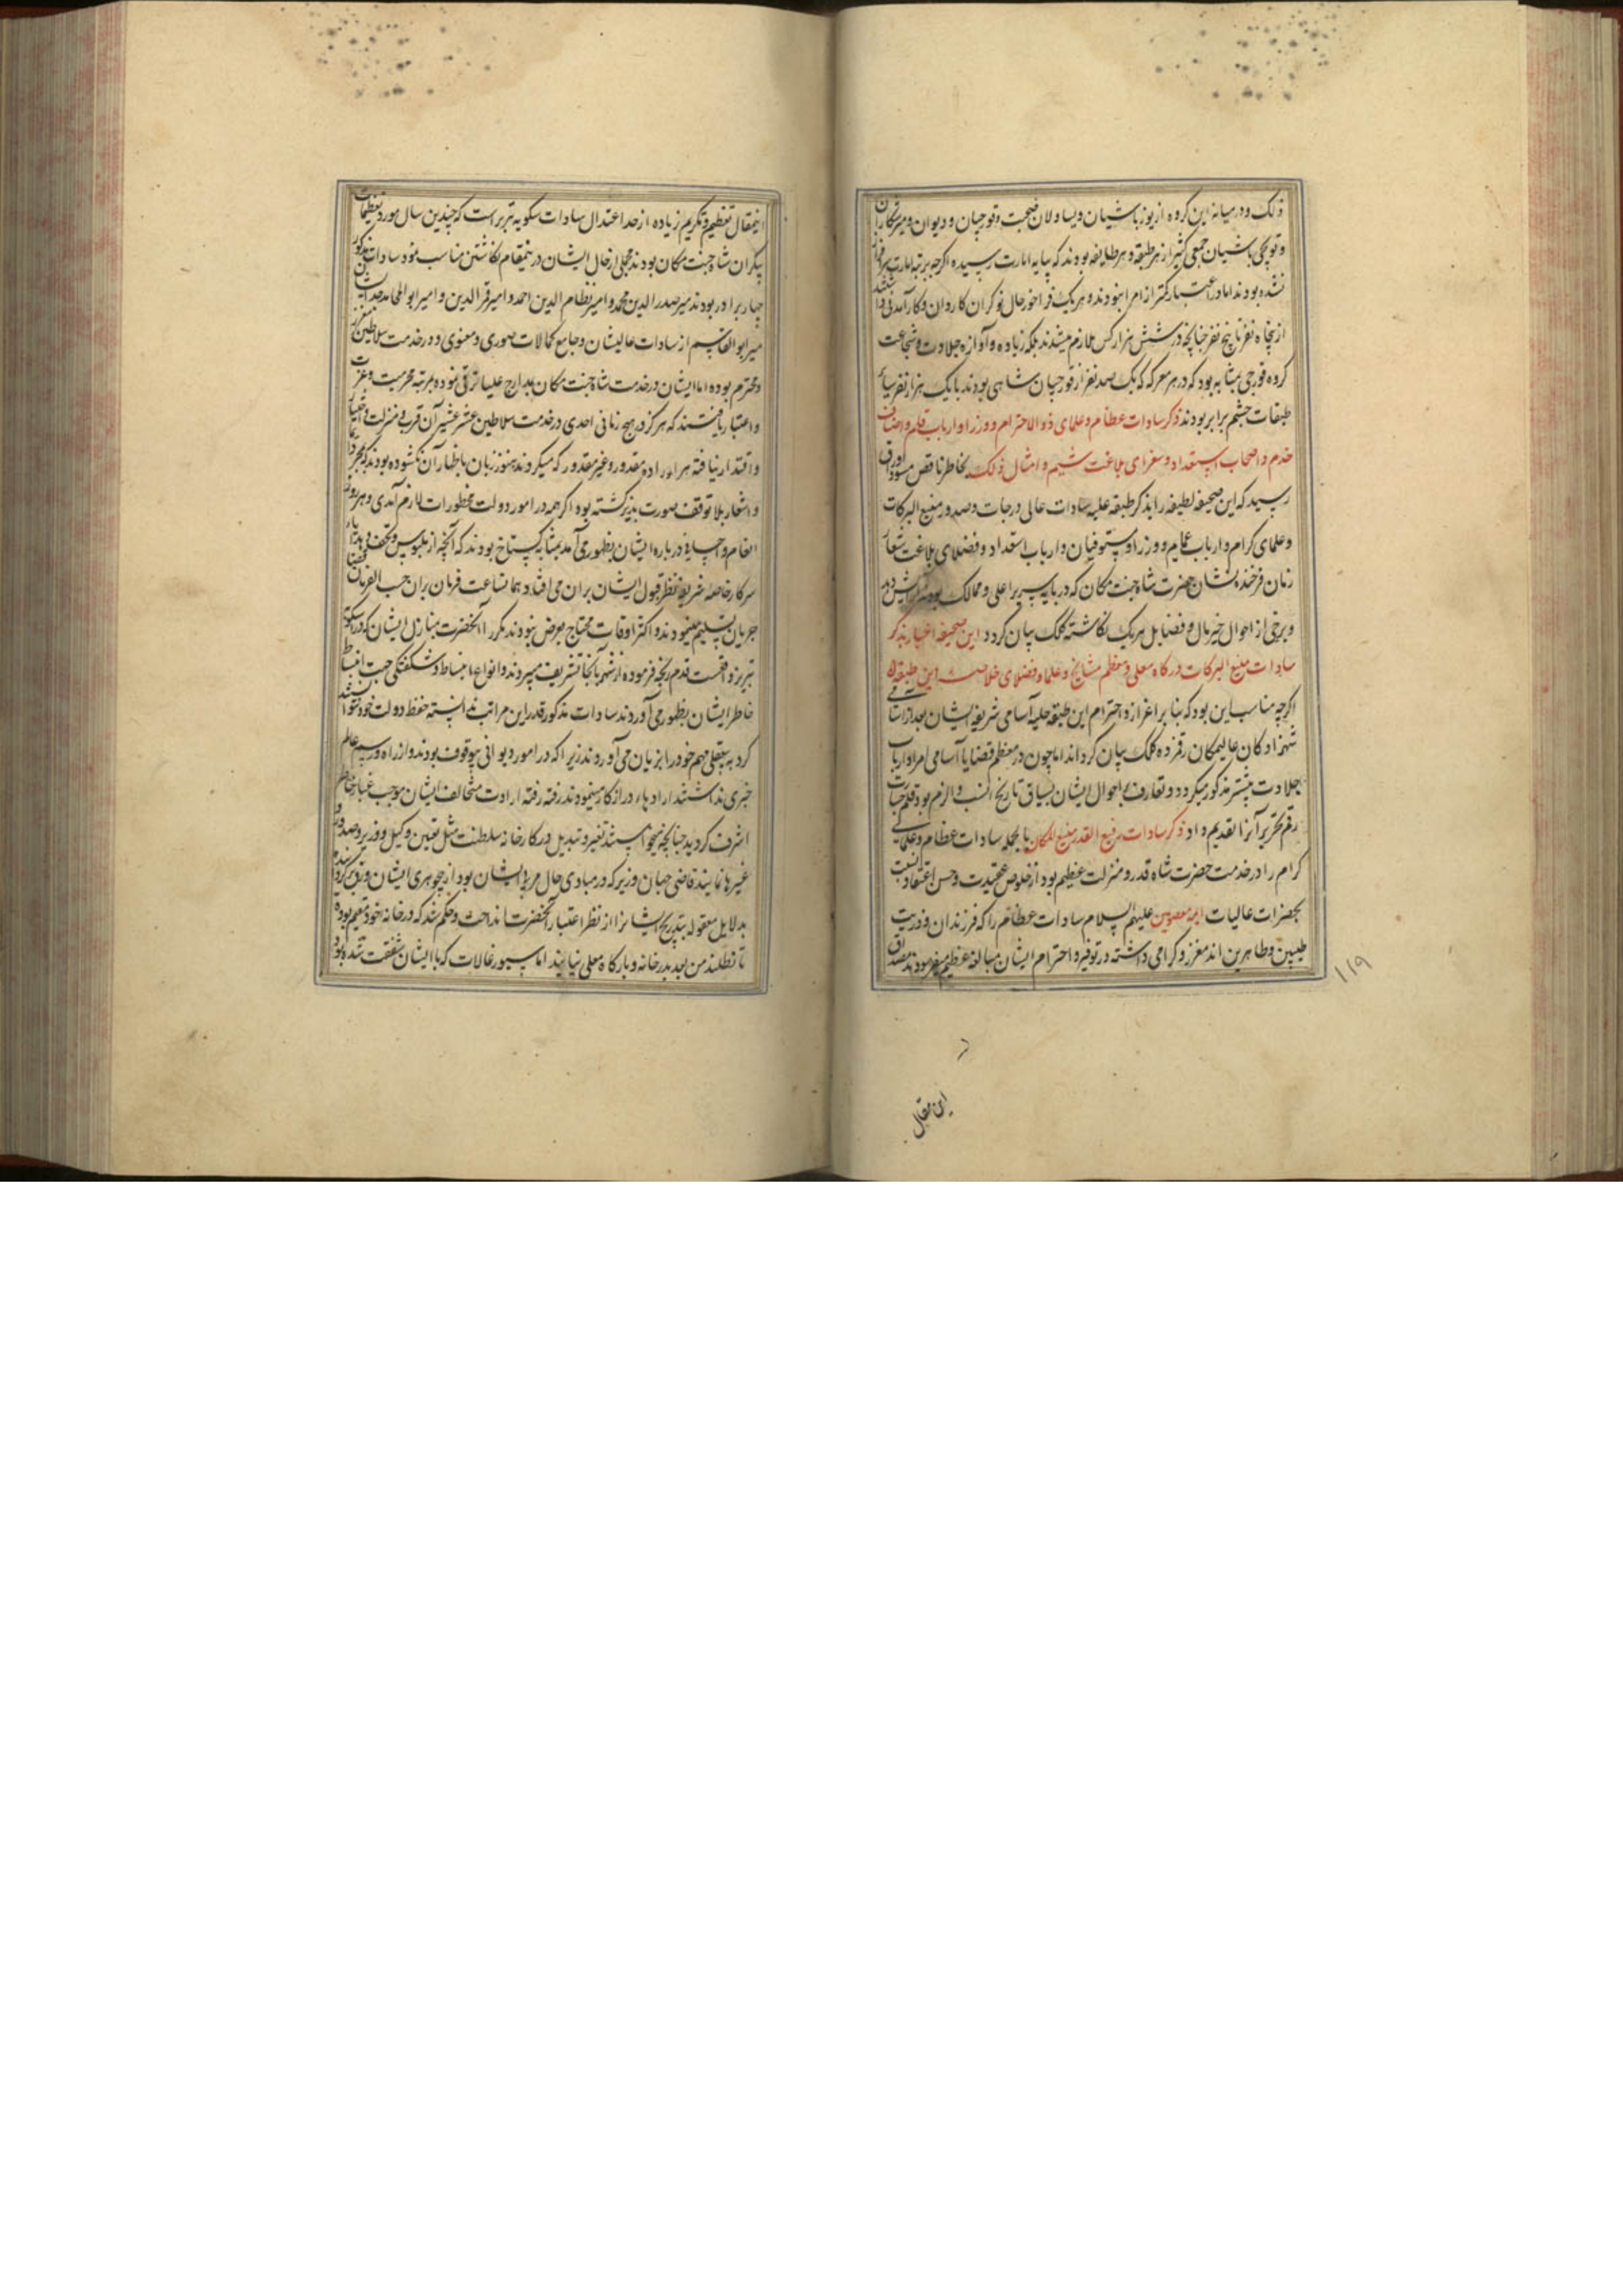 ذلک و در میانه این کروه از یوز باشیان و یساولان صحبت و قورچیان و دیوان و میر شکاران
و توپچی باشیان جمعی کثیر از هر طبقه و هر طایفه بودند که بپایه امارت رسیده اکرچه برتبه امارت سرافراز
نشده بودند اما در اعتبار کمتر از امرا نبودند و هر یک فراخور حال نوکران کاردان و کارآمدنی
از پنجاه نفر تا پنج نفر چنانچه در شش هزار کس ملازم میشدند بلکه زیاده و آوازه جلادت و شجاعت
کروه قورچی بمثابه بود که در هر معرکه که یک صد نفر از قورچیان شاهی بودند با یک هزار نفر سایر
طبقات حشم برابر بودند ذکر سادات عظام و علمای ذوالاحترام و وزرا و ارباب قلم و اصناف
خدم و اصحاب استعداد و شعرای بلاغت شیم و امثال ذلک بخاطر ناقص مسود اوراق
رسید که این صحیفه لطیفه را بذکر طبقه علیه سادات عالی درجات و صدور منیع البرکات
و علمای کرام و ارباب عمایم و وزرا و مستوفیان و ارباب استعداد و فضلای بلاغت شعار
زمان فرخنده نشان حضرت شاه جنت مکان که در پایه سریر اعلی و ممالک بودند
و برخی از احوال خیر مآل و فضایل هر یک نکاشته کلک بیان کردد این صحیفه اخبار بذکر
سادات منیع البرکات درکاه معلی و معظم مشایخ و علما و فضلای این طبقه
اکرچه مناسب این بود که بنا بر اعزاز و احترام این طبقه جلیه آسامی شریفه ایشان بعد از آسامی
شهزادکان عالیمکان رقم زده کلک بیان کرداند اما چون در معظم قضایا آسامی امرا و ارباب
جلادت بیشتر مذکور میکردد و تعارف باحوال ایشان بسیاق تاریخ انسب و الزم بود قلم
رقم تحریر آنرا تقدیم داد ذکر سادات رفیع القدر منیع المکان بالجمله سادات عظام و علمای
کرام را در خدمت حضرت شاه قدر و منزلت عظیم بود از خلوص عقیدت و حسن اعتقاد نسبت
بحضرات عالیات ایمه معصومین علیهم السلام سادات عظام را که فرزندان و ذریت
طیبین و طاهرین اند معزز و کرامی داشته در توقیر و احترام ایشان مبالغه عظیم میفرمودند مصداق
۱۱۹
این مقال
اینمقال تعظیم و تکریم زیاده از حد اعتدال سادات سکویه تبریز است که چندین سال مورد تعظیمات
بیکران شاه جنت مکان بودند مجملی از حال ایشان در نیمقام نکاشتن مناسب نمود سادات مذکور
چهار برادر بودند میر صدر الدین محمد و امیر نظام الدین احمد و امیر قمر الدین و امیر ابو المحامد
میر ابو القاسم از سادات عالیشان و جامع کمالات صوری و معنوی و در خدمت سلاطین معزز
و محترم بوده اما ایشان در خدمت شاه جنت مکان بمدارج علیا ترقی نموده بمرتبه محرمیت و عزت
و اعتبار یافتند که هرکز در هیچ زمانی احدی در خدمت سلاطین عشر عشیر آن قرب و منزلت و اختیار
و اقتدار نیافته هر اراده مقدور و غیر مقدور که میکردند هنوز زبان باظهار آن نکشوده بودند که بمجرد ایما
و اشعار بلا توقف صورت پذیر کشته بود اکر همه در امور دولت محظورات لازم آمدی و هر روز
انعام و احسان تازه درباره ایشان بظهور می آمد بمثابه کستاخ بودند که آنچه از ملبوس و تحف و هدایاء
سرکار خاصه شریفه نظر قبول ایشان بران می افتاد همانساعت فرمان بران حسب الفرمان قضا
جریان تسلیم مینمودند و اکثر اوقات محتاج بعرض نبودند مکررا آنحضرت بمنازل ایشان که در سکویه
تبریز واقعست قدم رنجه فرموده از شهر بآنجا تشریف میبردند و انواع انبساط و شکفتکی جهت انبساط
خاطر ایشان بظهور می آوردند سادات مذکور قدر این مراتب ندانسته حفظ دولت خود نتوانستند
کرد به بیعقلی مهم خود را بزیان می آوردند زیرا که در امور دیوانی بیوقوف بودند و از راه و رسم عالم
خبری نداشتند ارادهاء دور از کار مینمودند رفته رفته ارادت متخالف ایشان موجب غبار خاطر
اشرف کردید چنانچه میخواستند تغییر و تبدیل در کارخانه سلطنت مثل تعیین وکیل و وزیر و صدور و
غیرها نمایند قاضی جهان وزیر که در مبادی حال مربی ایشان بود
بدلایل معقوله بتدریج ایشانرا از نظر اعتبار آنحضرت انداخت و حکم شد که در خانه خود مقیم بوده
تا نطلبند من بعد بدرخانه و بارکاه معلی نیایند اما سیورغالات که با ایشان شفقت شده بود